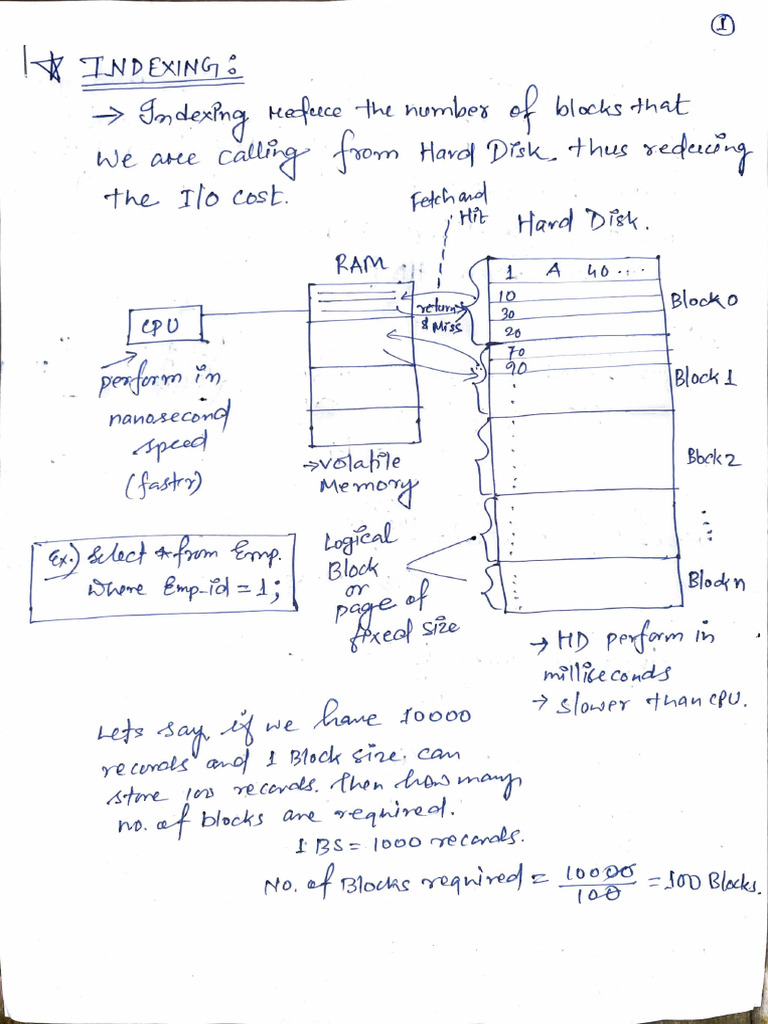 1
☆ INDEXING:
→ Indexing reduce the number of blocks that
we are calling from Hard Disk, thus reducing
the I/O cost.
Fetch and
Hit
Hard Disk.
RAM
1 A 40 ....
10
30
20
Block 0
return
& Miss
CPU
70
90
Block 1
perform in
nanosecond
speed
(faster)
→ volatile
Memory
Block 2
Ex.) Select * from Emp.
where Emp-id = 1;
Logical
Block
or
page of
fixed size
Block n
→ HD perform in
milliseconds
→ slower than CPU.
Lets say, if we have 10000
records and 1 Block size. can
store 100 records. then how many
no. of blocks are required.
1 BS = 1000 records.
No. of Blocks required = 10000/100 = 100 Blocks.